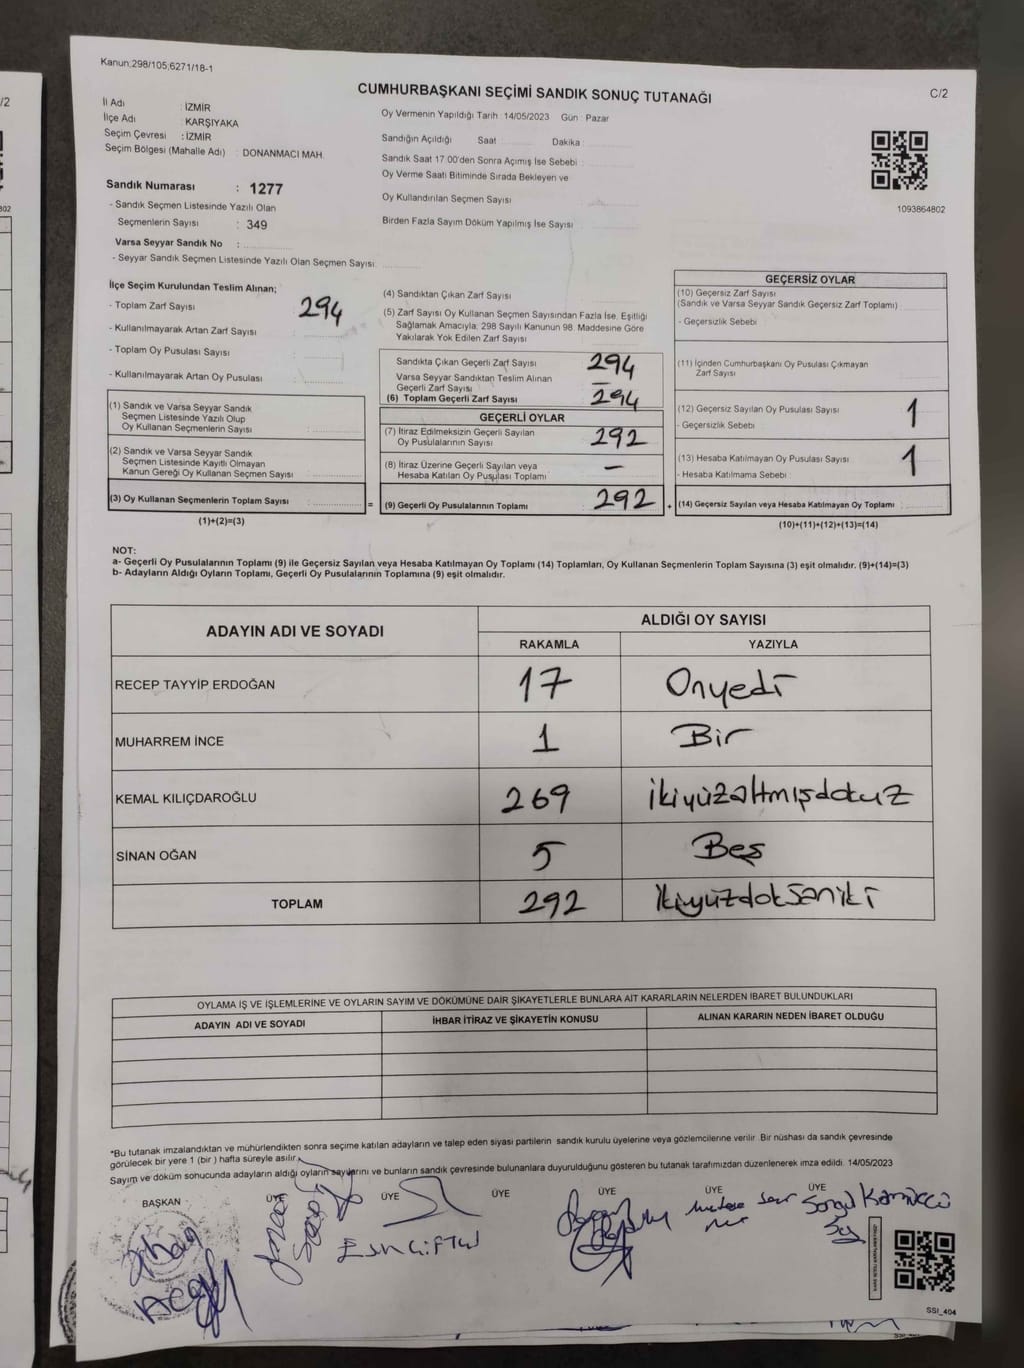 Kanun:298/105;6271/18-1
CUMHURBAŞKANI SEÇİMİ SANDIK SONUÇ TUTANAĞI
C/2
İl Adı : İZMİR
İlçe Adı : KARŞIYAKA
Seçim Çevresi : İZMİR
Seçim Bölgesi (Mahalle Adı) : DONANMACI MAH.
Oy Vermenin Yapıldığı Tarih : 14/05/2023 Gün : Pazar
Sandığın Açıldığı Saat Dakika :
Sandık Saat 17.00'den Sonra Açımış İse Sebebi :
Oy Verme Saati Bitiminde Sırada Bekleyen ve
Oy Kullandırılan Seçmen Sayısı
Birden Fazla Sayım Döküm Yapılmış İse Sayısı :
1093864802
Sandık Numarası : 1277
- Sandık Seçmen Listesinde Yazılı Olan
Seçmenlerin Sayısı : 349
Varsa Seyyar Sandık No :
- Seyyar Sandık Seçmen Listesinde Yazılı Olan Seçmen Sayısı:
İlçe Seçim Kurulundan Teslim Alınan;
- Toplam Zarf Sayısı : 294
- Kullanılmayarak Artan Zarf Sayısı :
- Toplam Oy Pusulası Sayısı :
- Kullanılmayarak Artan Oy Pusulası :
(1) Sandık ve Varsa Seyyar Sandık
Seçmen Listesinde Yazılı Olup
Oy Kullanan Seçmenlerin Sayısı :
(2) Sandık ve Varsa Seyyar Sandık
Seçmen Listesinde Kayıtlı Olmayan
Kanun Gereği Oy Kullanan Seçmen Sayısı :
(3) Oy Kullanan Seçmenlerin Toplam Sayısı : =
(1)+(2)=(3)
(4) Sandıktan Çıkan Zarf Sayısı
(5) Zarf Sayısı Oy Kullanan Seçmen Sayısından Fazla İse, Eşitliği
Sağlamak Amacıyla; 298 Sayılı Kanunun 98. Maddesine Göre
Yakılarak Yok Edilen Zarf Sayısı
Sandıkta Çıkan Geçerli Zarf Sayısı 294
Varsa Seyyar Sandıktan Teslim Alınan
Geçerli Zarf Sayısı —
(6) Toplam Geçerli Zarf Sayısı 294
GEÇERLİ OYLAR
(7) İtiraz Edilmeksizin Geçerli Sayılan
Oy Pusulalarının Sayısı 292
(8) İtiraz Üzerine Geçerli Sayılan veya
Hesaba Katılan Oy Pusulası Toplamı —
(9) Geçerli Oy Pusulalarının Toplamı 292 +
GEÇERSİZ OYLAR
(10) Geçersiz Zarf Sayısı
(Sandık ve Varsa Seyyar Sandık Geçersiz Zarf Toplamı)
- Geçersizlik Sebebi :
(11) İçinden Cumhurbaşkanı Oy Pusulası Çıkmayan
Zarf Sayısı
(12) Geçersiz Sayılan Oy Pusulası Sayısı 1
- Geçersizlik Sebebi :
(13) Hesaba Katılmayan Oy Pusulası Sayısı 1
- Hesaba Katılmama Sebebi :
(14) Geçersiz Sayılan veya Hesaba Katılmayan Oy Toplamı :
(10)+(11)+(12)+(13)=(14)
NOT:
a- Geçerli Oy Pusulalarının Toplamı (9) ile Geçersiz Sayılan veya Hesaba Katılmayan Oy Toplamı (14) Toplamları, Oy Kullanan Seçmenlerin Toplam Sayısına (3) eşit olmalıdır. (9)+(14)=(3)
b- Adayların Aldığı Oyların Toplamı, Geçerli Oy Pusulalarının Toplamına (9) eşit olmalıdır.
ADAYIN ADI VE SOYADI ALDIĞI OY SAYISI
RAKAMLA YAZIYLA
RECEP TAYYİP ERDOĞAN 17 Onyedi
MUHARREM İNCE 1 Bir
KEMAL KILIÇDAROĞLU 269 ikiyüzaltmışdokuz
SİNAN OĞAN 5 Beş
TOPLAM 292 ikiyüzdoksaniki
OYLAMA İŞ VE İŞLEMLERİNE VE OYLARIN SAYIM VE DÖKÜMÜNE DAİR ŞİKAYETLERLE BUNLARA AİT KARARLARIN NELERDEN İBARET BULUNDUKLARI
ADAYIN ADI VE SOYADI İHBAR İTİRAZ VE ŞİKAYETİN KONUSU ALINAN KARARIN NEDEN İBARET OLDUĞU
*Bu tutanak imzalandıktan ve mühürlendikten sonra seçime katılan adayların ve talep eden siyasi partilerin sandık kurulu üyelerine veya gözlemcilerine verilir. Bir nüshası da sandık çevresinde
görülecek bir yere 1 (bir) hafta süreyle asılır.
Sayım ve döküm sonucunda adayların aldığı oyların sayılarını ve bunların sandık çevresinde bulunanlara duyurulduğunu gösteren bu tutanak tarafımızdan düzenlenerek imza edildi. 14/05/2023
BAŞKAN ÜYE ÜYE ÜYE ÜYE ÜYE ÜYE
SSI_404